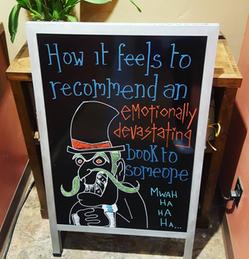 How it feels to
recommend an
emotionally
devastating
book to
someone
MWAH
HA
HA HA
HA...